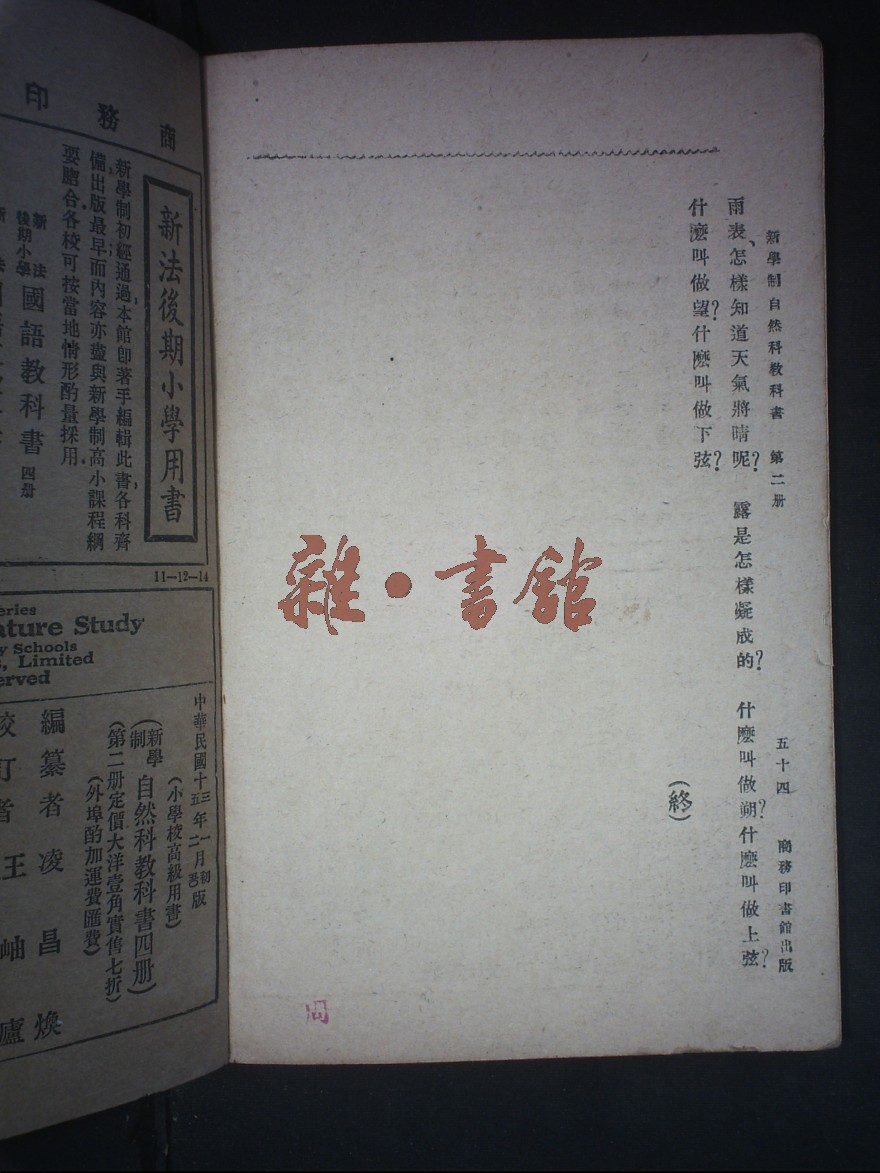 新學制自然科教科書 第二册 五十四 商務印書館出版
雨表、怎樣知道天氣將晴呢？ 露是怎樣凝成的？ 什麼叫做朔？什麼叫做上弦？
什麼叫做望？什麼叫做下弦？
（終）
雜•書館
商務印
新法後期小學用書
新學制初經通過，本館卽著手編輯此書，各科齊
備，出版最早，而內容亦盡與新學制高小課程綱
要脗合，各校可按當地情形酌量採用．
新法後期小學 國語教科書 四册
11—12—14
eries
ature Study
y Schools
s, Limited
erved
中華民國十三年一月初版
（小學校高級用書）
（新學制 自然科教科書四册）
（第二册定價大洋壹角實售七折）
（外埠酌加運費匯費）
編纂者 凌昌煥
校訂者 王岫廬